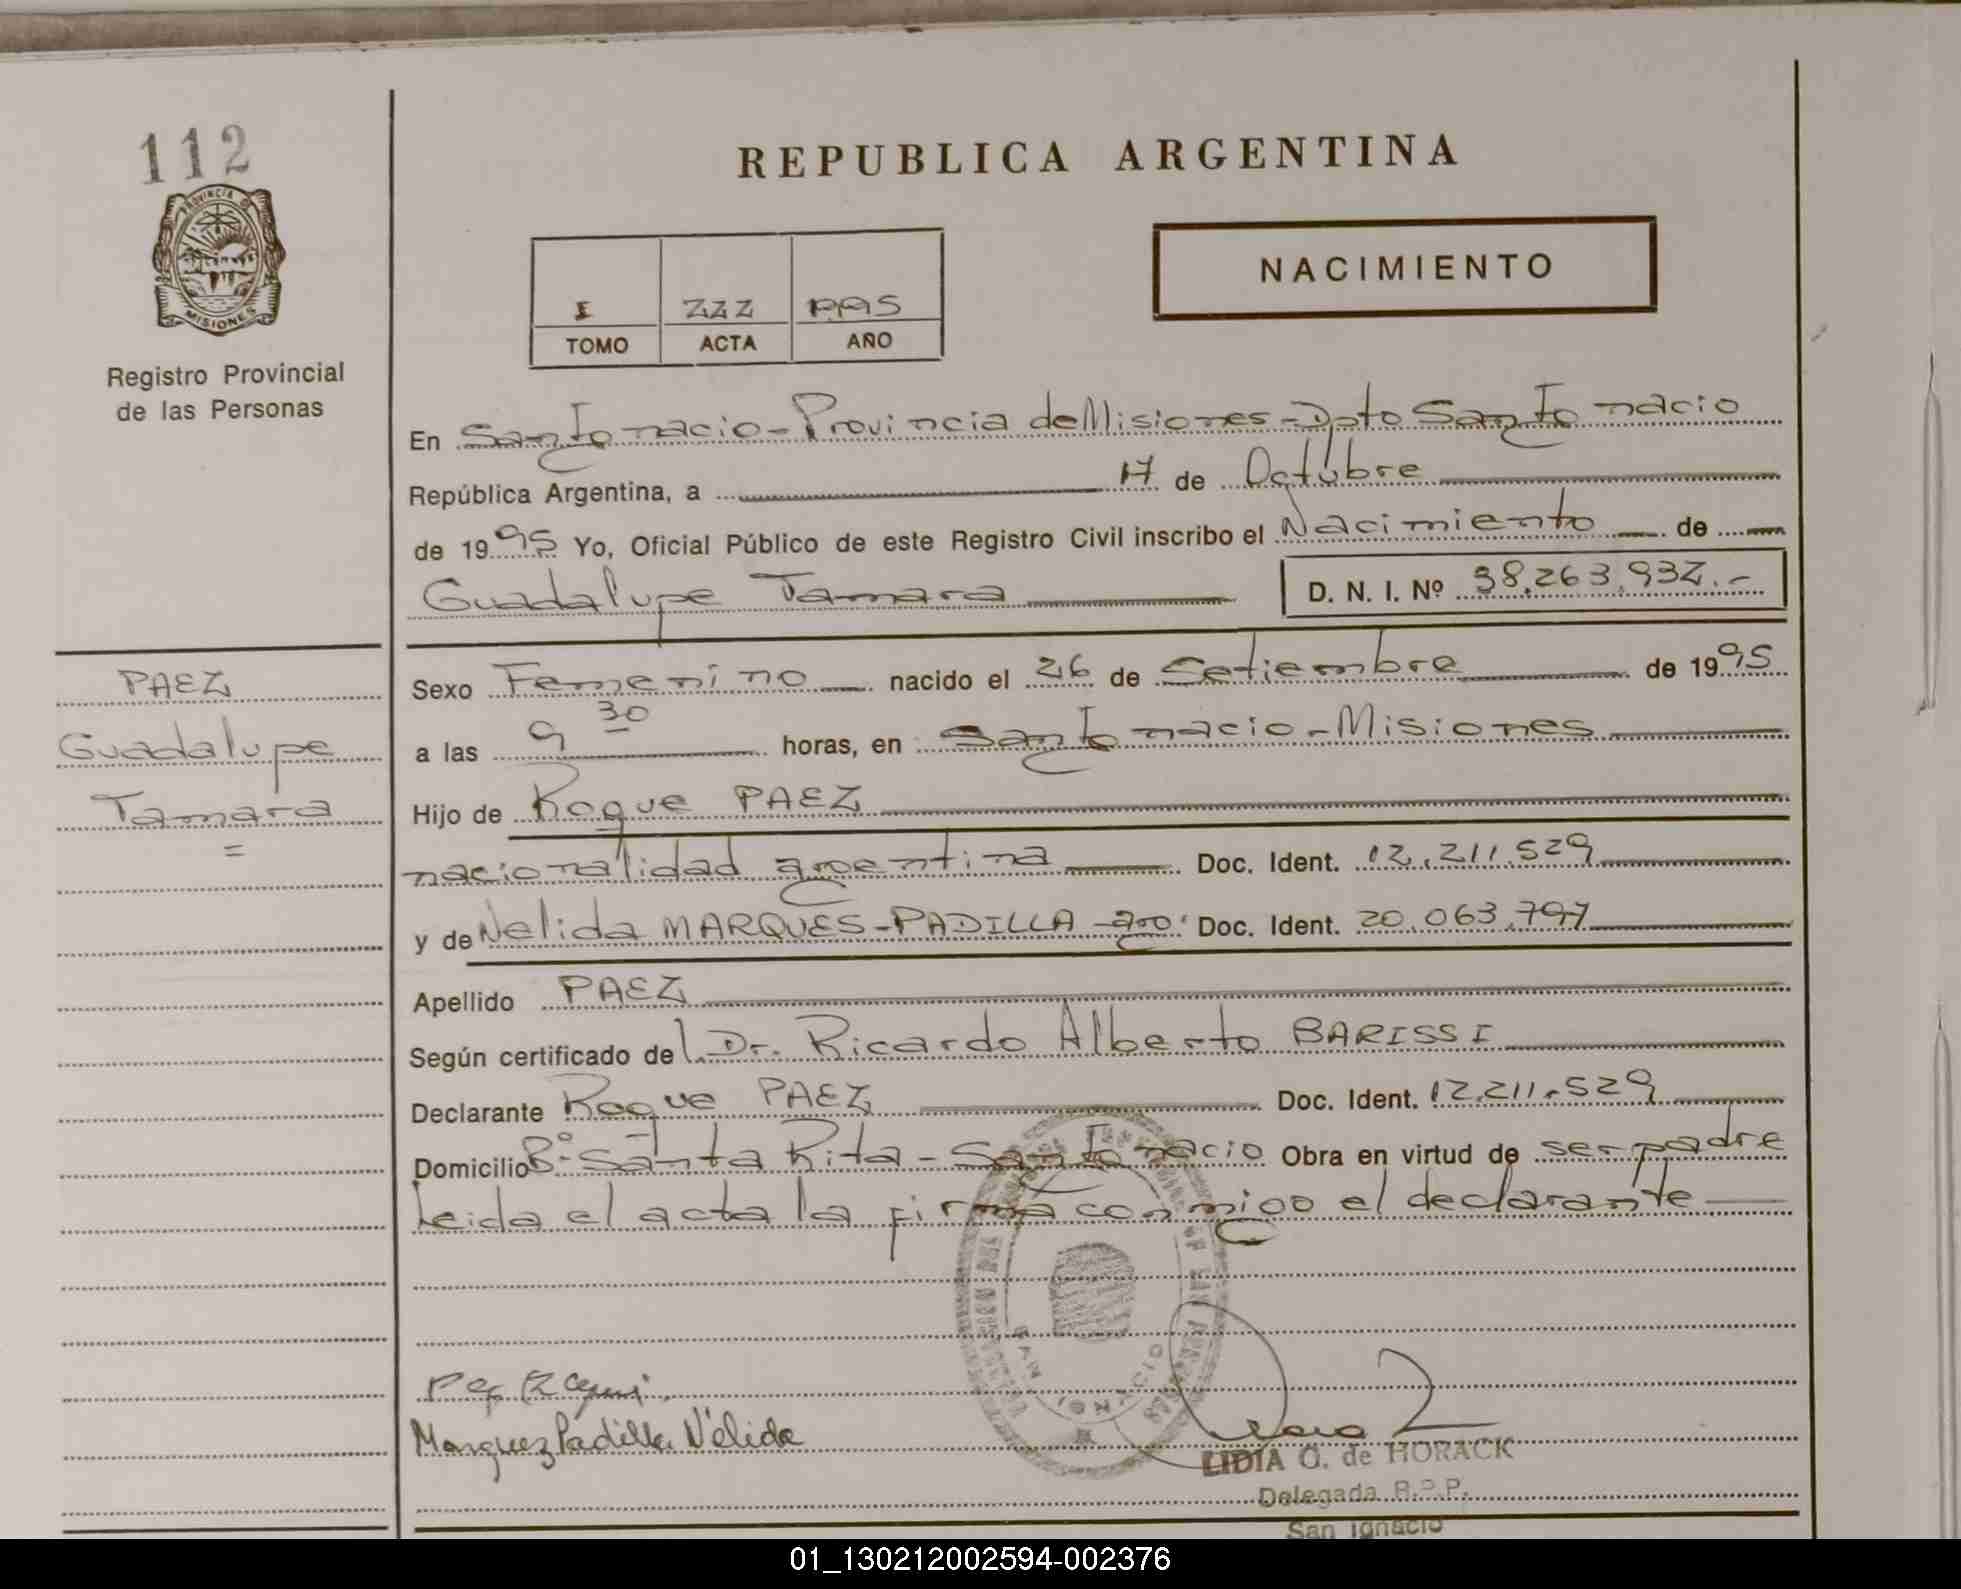 112
PROVINCIA DE
MISIONES
Registro Provincial
de las Personas
REPUBLICA ARGENTINA
NACIMIENTO
I 222 1995
TOMO ACTA AÑO
En San Ignacio - Provincia de Misiones - Dpto San Ignacio
República Argentina, a 17 de Octubre
de 1995 Yo, Oficial Público de este Registro Civil inscribo el Nacimiento de
Guadalupe Tamara D. N. I. Nº 38.263.932.-
PAEZ
Guadalupe
Tamara
=
Sexo Femenino nacido el 26 de Setiembre de 1995
a las 9 30 horas, en San Ignacio - Misiones
Hijo de Roque PAEZ
nacionalidad argentina Doc. Ident. 12.211.529
y de Nelida MARQUES-PADILLA - arg. Doc. Ident. 20.063.797
Apellido PAEZ
Según certificado de l Dr. Ricardo Alberto BARISSI
Declarante Roque PAEZ Doc. Ident. 12.211.529
Domicilio Bº Santa Rita - San Ignacio Obra en virtud de ser padre
Leida el acta la firma conmigo el declarante
SAN IGNACIO
Marquez Padilla Nélida
LIDIA G. de HORACK
Delegada R.P.P.
San Ignacio
01_130212002594-002376